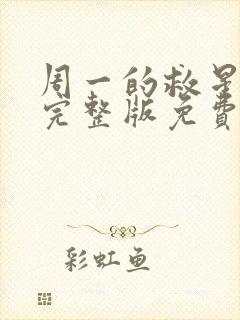 周一的救星
完整版免费
彩虹鱼